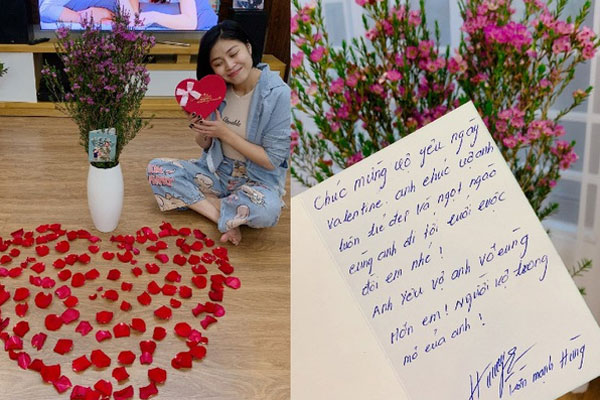 Chúc mừng vợ yêu ngày
Valentine. anh chúc vợ anh
luôn trẻ đẹp và ngọt ngào
cùng anh đi tới cuối cuộc
đời em nhé!
Anh yêu vợ anh vô cùng
Hơn em! Người vợ trong
mơ của anh!
mạnh Hùng